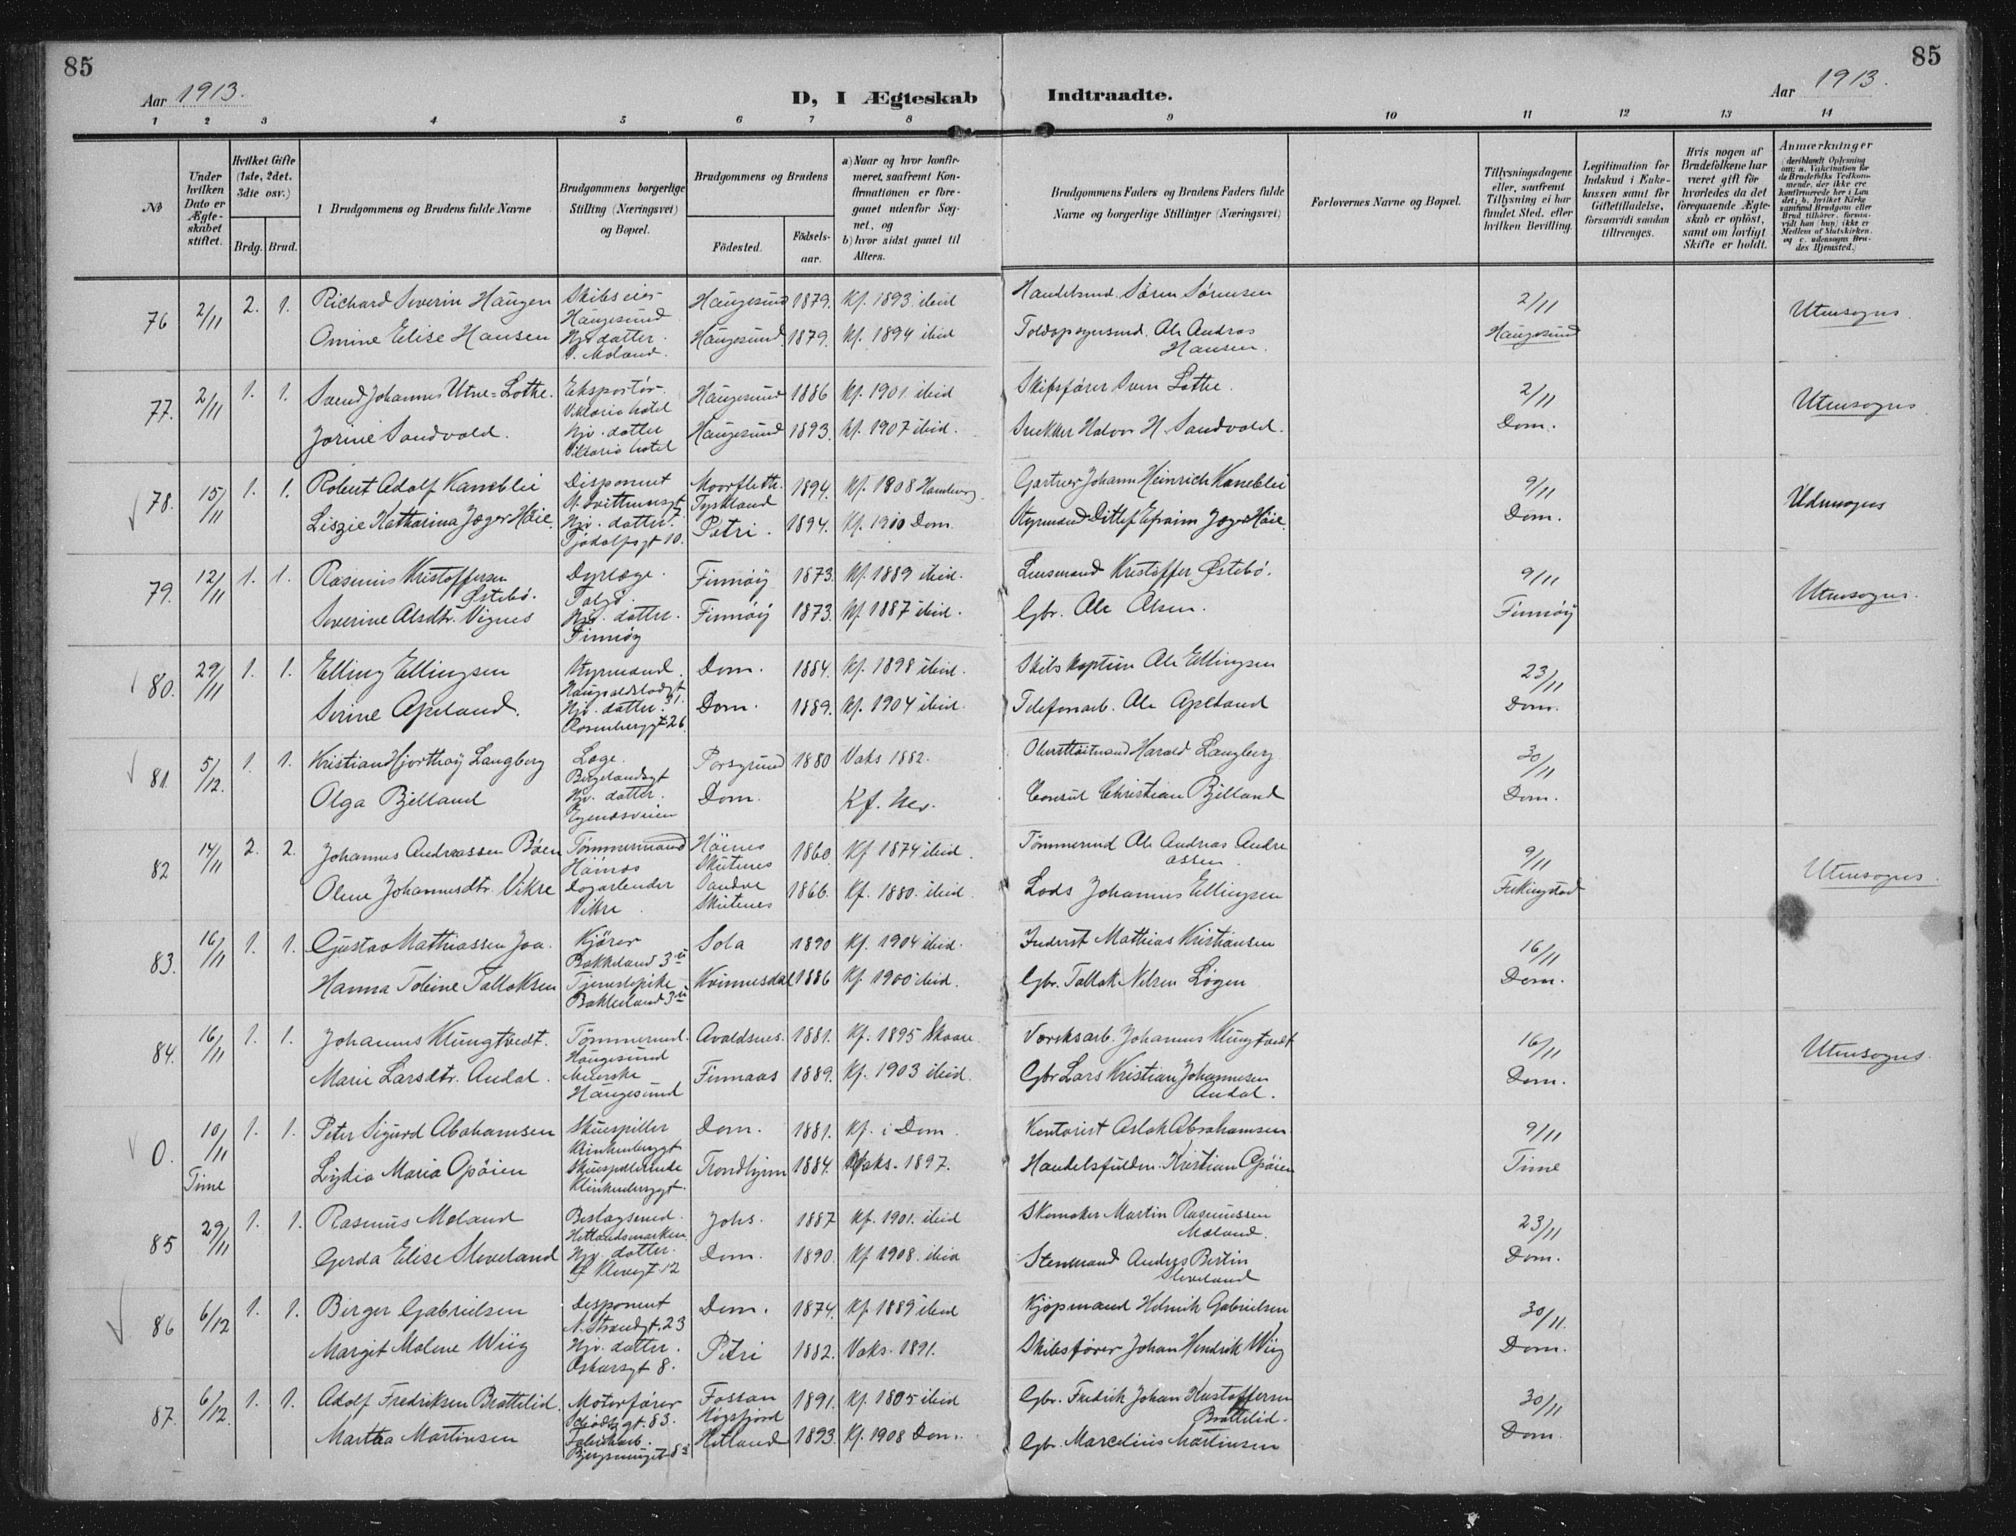 85
85
Aar 1913.
D, I Ægteskab Indtraadte.
Aar 1913.
1 2 3 4 5 6 7 8 9 10 11 12 13 14
No
Under hvilken Dato er Ægteskabet stiftet.
Hvilket Gifte (1ste, 2det. 3die osv.)
Brdg. Brud.
1 Brudgommens og Brudens fulde Navne
Brudgommens borgerlige Stilling (Næringsvei) og Bopæl.
Brudgommens og Brudens
Födested.
Födselsaar.
a) Naar og hvor konfirmeret, saafremt Konfirmationen er foregaaet udenfor Sognet, og
b) hvor sidst gaaet til Alters.
Brudgommens Faders og Brudens Faders fulde Navne og borgerlige Stillinger (Næringsvei)
Forlovernes Navne og Bopæl.
Tillysningsdagene eller, saafremt Tillysning ei har fundet Sted, efter hvilken Bevilling.
Legitimation for Indskud i Enkekassen samt for Giftetilladelse, forsaavidt saadan tiltrænges.
Hvis nogen af Brudefolkene har været gift för hvorledes da det foregaaende Ægteskab er oplöst, samt om lovligt Skifte er holdt.
Anmærkninger
76 2/11 2. 1. Richard Severin Haugen Skibseier Haugesund Haugesund 1879. Kf. 1893 ibid Handelsmd. Sören Sörensen 2/11 Utensogns.
Omine Elise Hansen Hjv. datter. Haugesund 1879. Kf. 1894 ibid Ole Andreas Hansen. Haugesund
77. 2/11 1. 1. Svend Johannes Utne-Lothe. Eksportör. Viktoria hotel Haugesund 1886 Kf. 1901 ibid Skibsförer Sven Lothe. 2/11 Utensogns
Jorine Sandvold. Hjv. datter Viktoria hotel Haugesund 1893. Kf. 1907 ibid. Snekker Halvor H. Sandvold. Dom.
78. 15/11 1. 1. Robert Adolf Kaneblei Disponent Moorfleth. Tyskland 1894. Kf. 1908 Hamburg. Gartner Johann Heinrich Kaneblei 9/11 Udensogns
Liszie Katharina Jæger Höie. Hjv. datter. Tjodolfsgt 10. Petri. 1894. Kf. 1910 Dom. Styrmand Ditlef Efraim Jæger Höie. Dom.
79. 12/11 1. 1. Rasmus Kristoffersen Östebö. Dyrlæge. Talgö. Finnöy 1873. Kf. 1889 ibid. Lensmand Kristoffer Östebö. 9/11 Utensogns.
Severine Olsdtr. Vignes Hjv. datter. Finnöy Finnöy 1873. Kf. 1887 ibid. Gbr. Ole Olsen. Finnöy
80. 29/11 1. 1. Elling Ellingsen Styrmand. Haugvaldstadgt 31. Dom. 1884. Kf. 1898 ibid. Skibskaptein Ole Ellingsen 23/11
Serine Apeland. Hjv. datter. Rosenberggt 26. Dom. 1889. Kf. 1904 ibid. Telefonarb. Ole Apeland Dom.
81. 5/12. 1. 1. Kristian Hjorthöy Langberg Læge. Bergelandsgt Porsgrund 1880 Vaks 1882. Oberstlöitnand Harald Langberg 30/11
Olga Bjelland Hjv. datter. Egenæsveien Dom. Kf. Hev. Consul Christian Bjelland Dom.
82 14/11 2. 2. Johannes Andreassen Böen Tömmermand Höines Höines Skutenes 1860. Kf 1874 ibid. Tömmermd Ole Andreas Andreassen. 9/11 Utensogns.
Oline Johannesdtr. Vikre Dagarbeider Vikre. Sandve Skutenes 1866. Kf. 1880. ibid. Lods Johannes Ellingsen Ferkingstad
83. 16/11 1. 1. Gustav Mathiassen Joa. Kjörer Bakkeland 3 Sola 1890 Kf. 1904 ibid. Inderst Mathias Kristiansen 16/11
Hanna Tobine Tallaksen Tjenestepike Bakkeland 3 Kvinnesdal 1886 Kf. 1900 ibid. Gbr. Tallak Nilsen Lögen Dom.
84. 16/11 1. 1. Johannes Klungtvedt. Tömmermd. Haugesund Avaldsnes. 1881. Kf. 1895 Skaare. Verksarb. Johannes Klungtvedt 16/11 Utensogns.
Marie Larsdtr. Andal. Meierske Haugesund Finnaas 1889. Kf. 1903 ibid. Gbr Lars Kristian Johannesen Andal. Dom.
0. 10/11 Time 1. 1. Peter Sigurd Abrahamsen Skuespiller Klinkenberggt Dom. 1881. Kf. i Dom. Kontorist Aslak Abrahamsen 9/11
Lydia Maria Opöien Skuespillerinde Klinkenberggt. Trondhjem 1884. Vaks. 1897. Handelsfuldm. Kristian Opöien Time
85 29/11 1. 1. Rasmus Moland Beslagsmed. Hetlandsmarken. Johs. 1887 Kf. 1901. ibid Skomaker Martin Rasmussen Moland. 23/11
Gerda Elise Sleveland Hjv. datter. Dom. 1890. Kf 1908. ibid Stenmand Andres Bertin Sleveland Dom.
86 6/12 1. 1. Birger Gabrielsen Disponent N. Strandgt. 23 Dom. 1874. Kf. 1889 ibid Kjöpmand Helmik Gabrielsen 30/11.
Margit Malene Wiig Hjv. datter. Oskarsgt 8. Petri 1882. Vaks. 1891. Skibsförer Johan Hendrik Wiig Dom.
87. 6/12. 1. 1. Adolf Fredriksen Brattelid. Motorförer 83. Fossan Högsfjord 1891. Kf. 1805 ibid Gbr. Fredrik Johan Kristoffersen Brattelid. 30/11
Martha Martinsen Fabrikarb. Hetland 1893 Kf. 1908 Dom. Gbr. Marcelius Martinsen Dom.